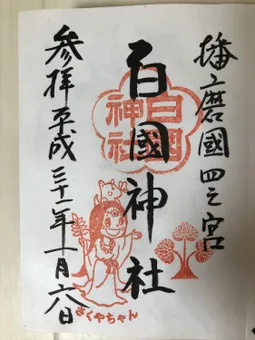 播磨國四之宮
白國神社
白國
神社
参拝 平成三十一年一月六日
さくやちゃん